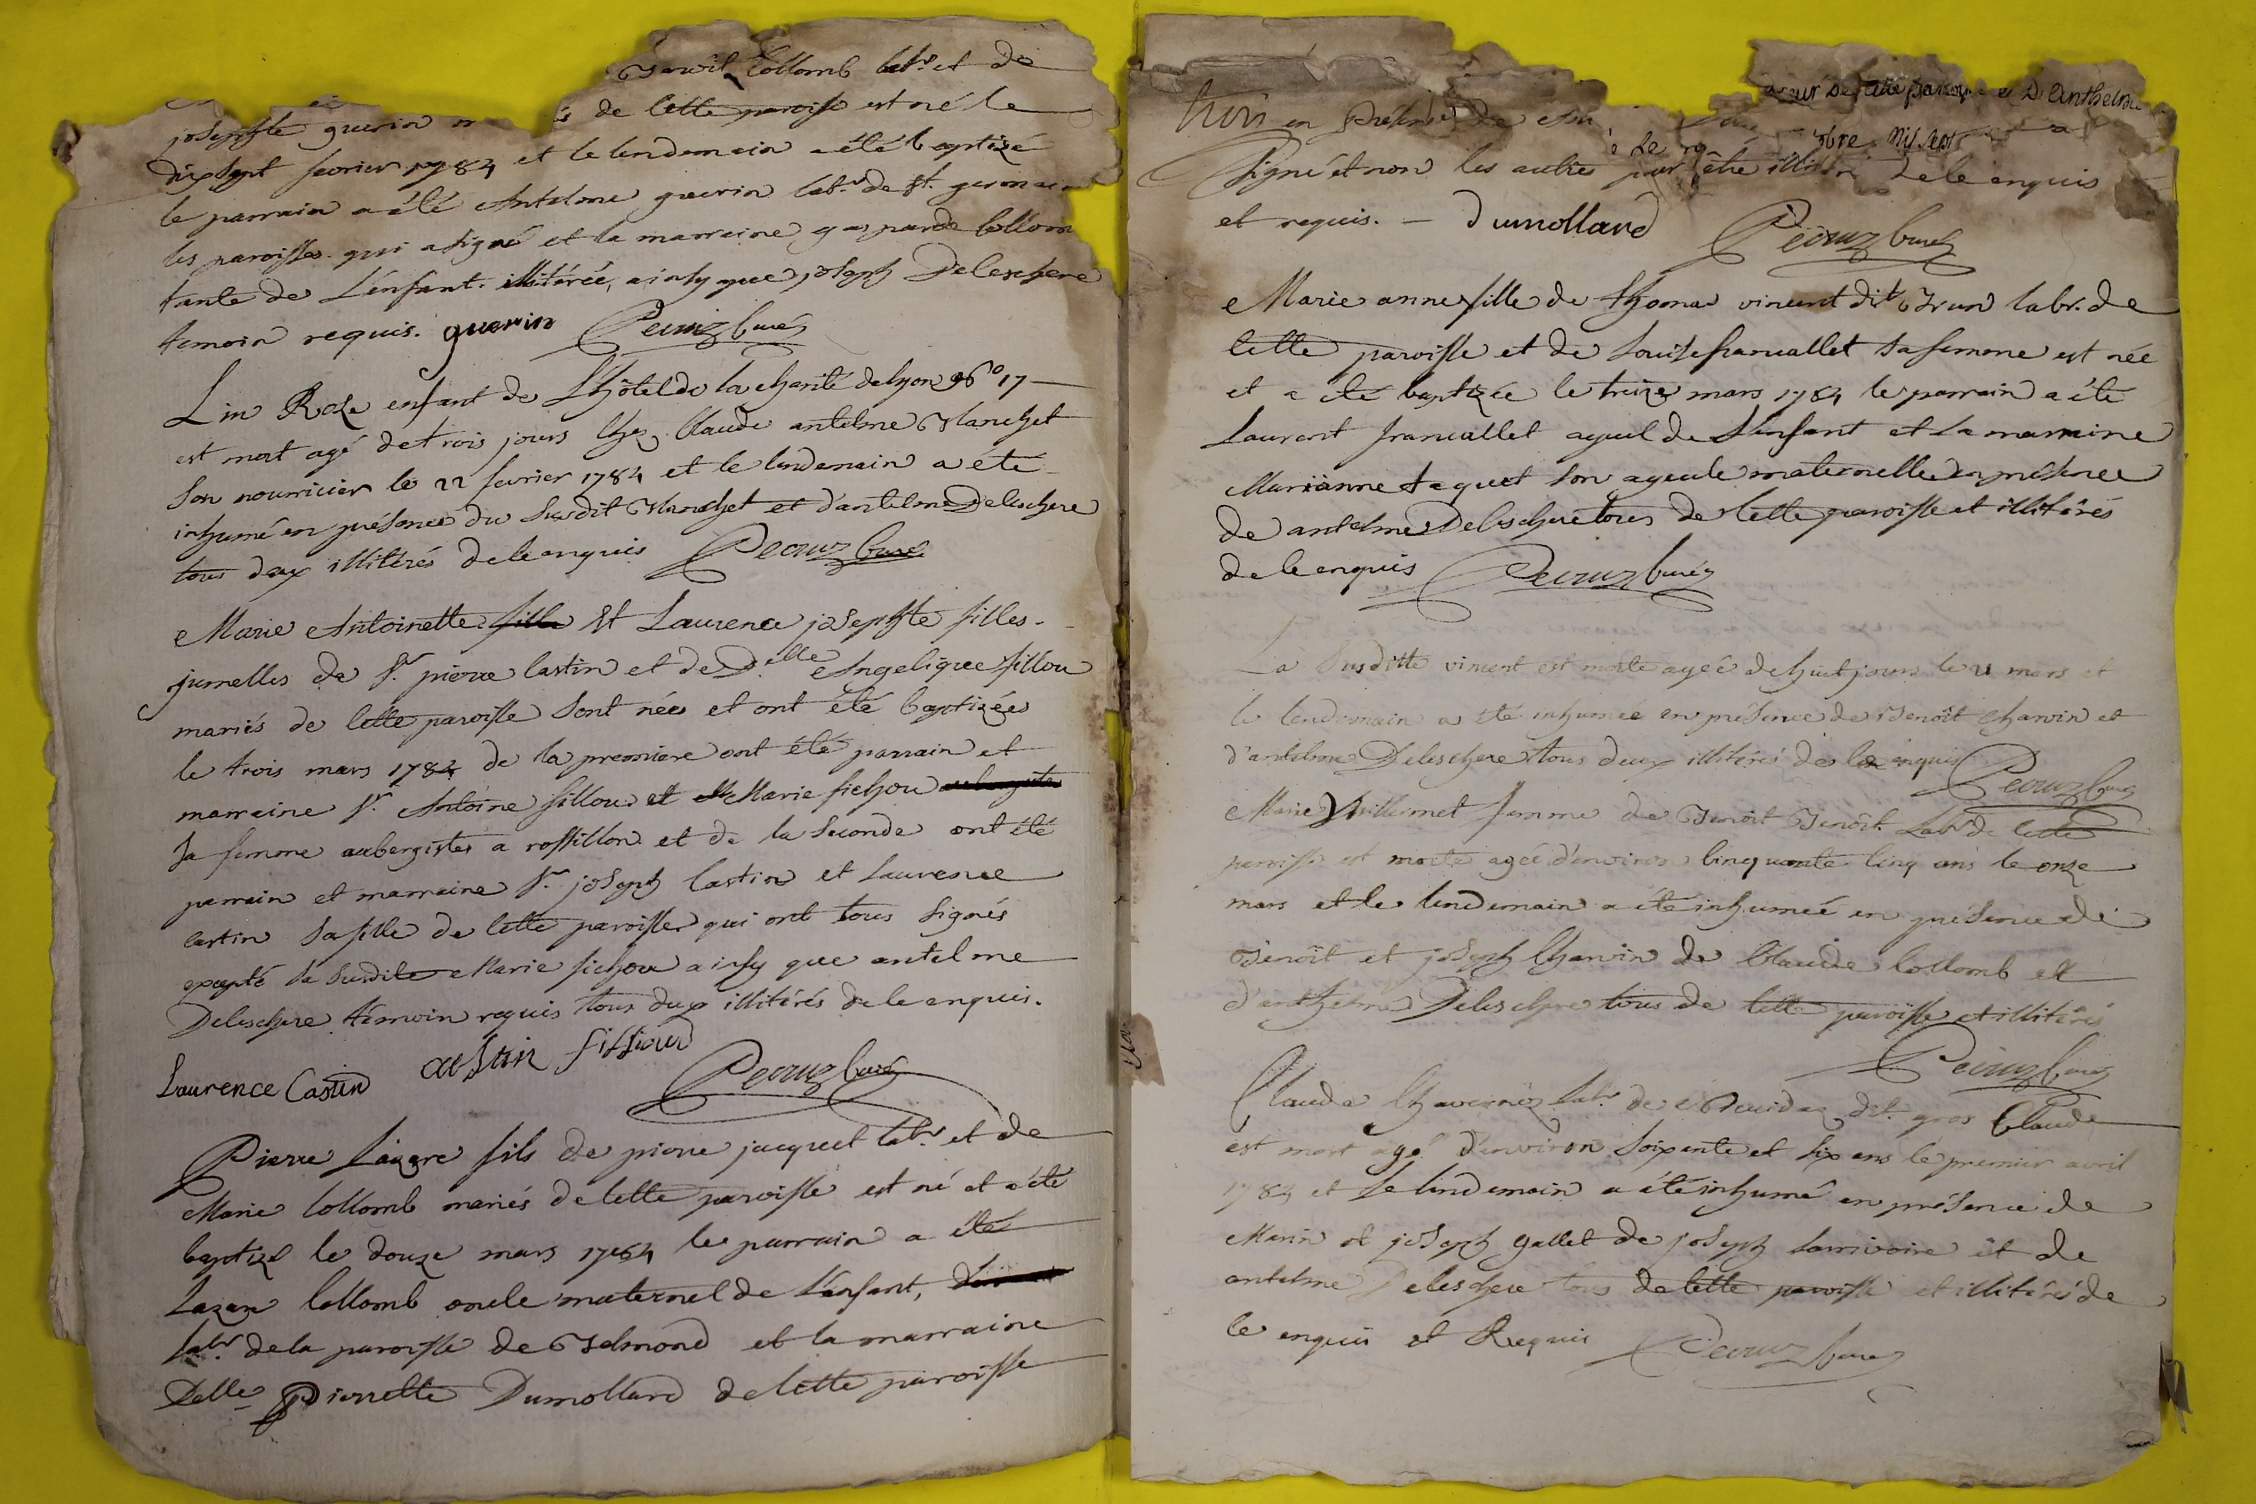 Benoit Collomb labr et de
josephte guerin de cette paroisse est né le
dix sept fevrier 1784 et le lendemain a été baptizé
le parrain a été Antelme guerin labr de St. germain
les paroisses qui a signé et la marraine gasparde Collomb
tante de L'enfant illitérée, ainsy que joseph Deleschere
temoin requis. guerin Pecruz Curé
Lin Roze enfant de L'hôtel de la charité de lyon 96° 17
est mort agé de trois jours chez Claude antelme Blanchet
son nourricier le 22 fevrier 1784 et le lendemain a été
inhumé en présence du susdit Blanchet et d'antelme Deleschere
tous deux illitérés de le enquis Pecruz Curé
Marie Antoinette fille Et Laurence josephte filles
jumelles de Sr. pierre Castin et de Delle Angelique fillou
mariés de cette paroisse sont nées et ont été baptizées
le trois mars 1784 de la premiere ont été parrain et
marraine Sr. Antoine fillou et Marie fichou
sa femme aubergistes a rossillon et de la seconde ont été
parrain et marraine Sr. joseph Castin et Laurence
Castin sa fille de cette paroisse qui ont tous signés
excepté la susdite Marie fichou ainsy que antelme
Deleschere témoin requis tous deux illitérés de le enquis.
Laurence Castin castin fillioud
Pecruz Curé
Pierre Lazare fils de pierre jacquet labr et de
Marie Collomb mariés de cette paroisse est né et a été
baptizé le douze mars 1784 le parrain a été
Lazare Collomb oncle maternel de L'enfant,
labr de la paroisse de Belmond et la marraine
Delle Pierrette Dumollard de cette paroisse
trois en présence de
signé et non les autres pour être illitérés de le enquis
et requis. — Dumollard Pecruz Curé
Marie anne fille de thomas vincent dit Brun labr. de
cette paroisse et de Louise francallet sa femme est née
et a été baptizée le treize mars 1784 le parrain a été
Laurent francallet ayeul de L'enfant et La marraine
Marianne taquet son ayeule maternelle en présence
de antelme Deleschere tous de cette paroisse et illitérés
de le enquis Pecruz Curé
La susditte vincent est morte agée de huit jours le 21 mars et
le lendemain a été inhumée en présence de Benoît Charvin et
d'antelme Deleschere tous deux illitérés de le enquis Pecruz Curé
Marie Vuillermet femme de Benoît Benoît Labr de cette
paroisse est morte agée d'environ cinquante cinq ans le onze
mars et le lendemain a été inhumée en présence de
Benoît et joseph Charvin de Claude Collomb et
d'anthelme Deleschere tous de cette paroisse et illitérés
Pecruz Curé
Claude Chavernoz labr de dit gros Claude
est mort agé d'environ soixante et six ans le premier avril
1784 et le lendemain a été inhumé en présence de
Marin et joseph gallet de joseph Larrivoire et de
antelme Deleschere tous de cette paroisse et illitérés de
le enquis et Requis Pecruz Curé